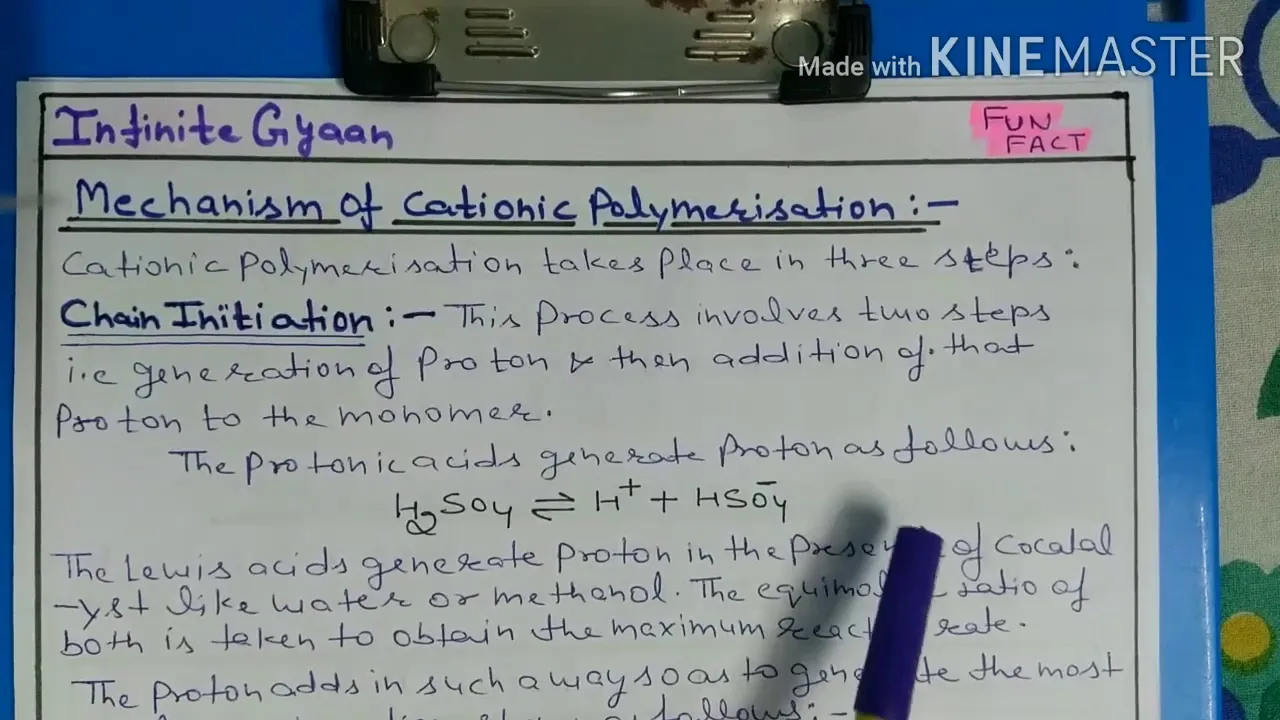 Made with KINEMASTER
Infinite Gyaan
FUN
FACT
Mechanism of Cationic Polymerisation :-
Cationic Polymerisation takes Place in three steps:
Chain Initiation :- This Process involves two steps
i.e generation of Proton & then addition of that
Proton to the monomer.
The Protonic acids generate Proton as follows:
H₂SO₄ ⇌ H⁺ + HSO₄⁻
The Lewis acids generate Proton in the of Cocatal
-yst like water or methanol. The ratio of
both is taken to obtain the maximum rate.
The Proton adds in such a way so as to the most
follows:-